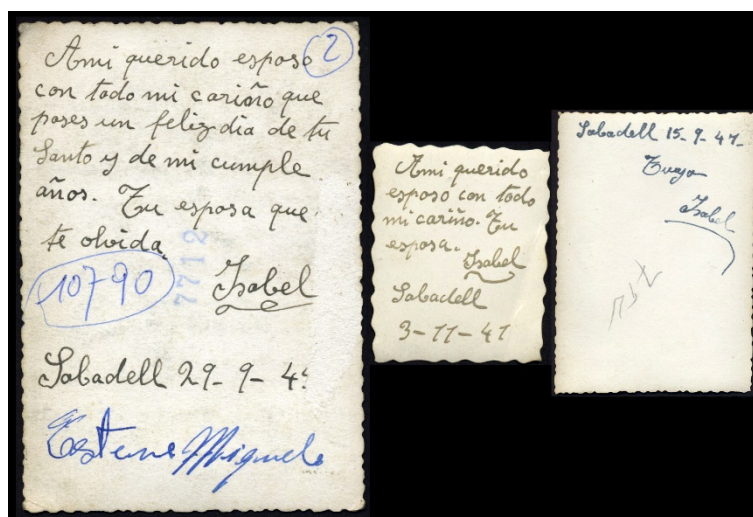 A mi querido esposo
con todo mi cariño que
pases un feliz dia de tu
Santo y de mi cumple
años. Tu esposa que
te olvida.
Isabel
Sabadell 29-9-4
2
10790
7712
A mi querido
esposo con todo
mi cariño. Tu
esposa.
Isabel
Sabadell
3-11-47
Sabadell 15-9-47-
Tuyo
Isabel